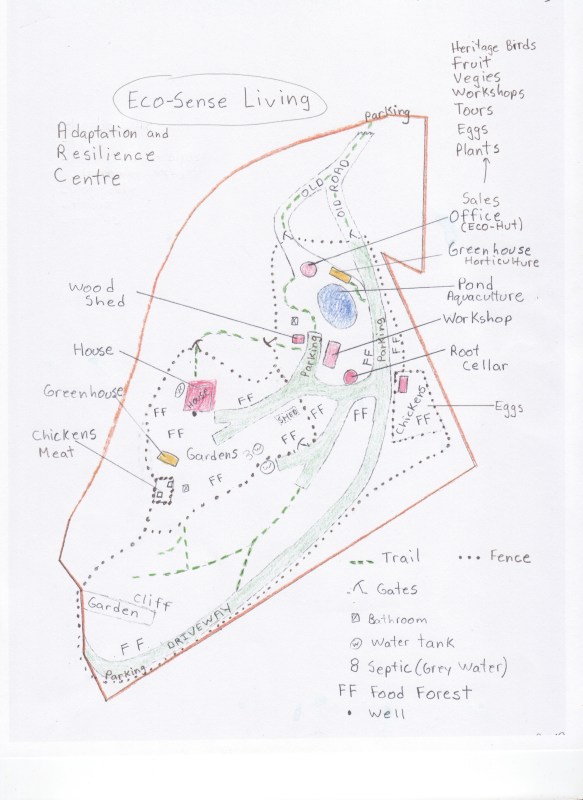 Heritage Birds
Fruit
Vegies
Workshops
Tours
Eggs
Plants
Eco-Sense Living
Adaptation and
Resilience
Centre
Parking
OLD
OLD ROAD
Sales
Office
(Eco-Hut)
Greenhouse
Horticulture
Pond
Aquaculture
Workshop
Root
Cellar
Wood
Shed
Parking
Parking
FF
FF
House
House
W
Greenhouse
FF
FF
FF
FF
FF
SHED
Chickens
FF
Eggs
Chickens
Meat
Gardens
W
W
FF
Garden
Cliff
FF
DRIVEWAY
Parking
Trail
Fence
Gates
Bathroom
W Water tank
8 Septic (Grey Water)
FF Food Forest
Well